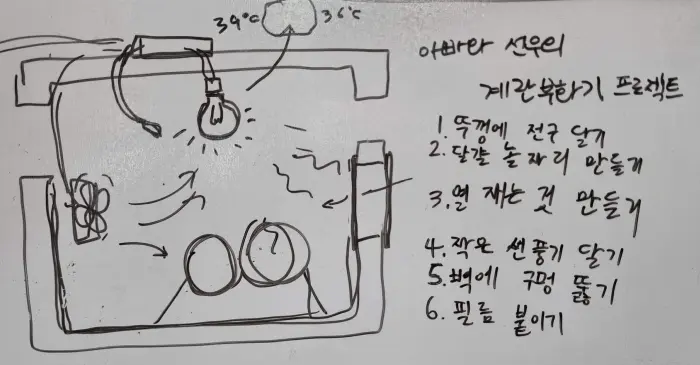 39°C 36°C
아빠와 선우의
계란부화기 프로젝트
1. 뚜껑에 전구 달기
2. 달걀 놓을 자리 만들기
3. 열 재는 것 만들기
4. 작은 썬풍기 달기
5. 벽에 구멍 뚫기
6. 필름 붙이기